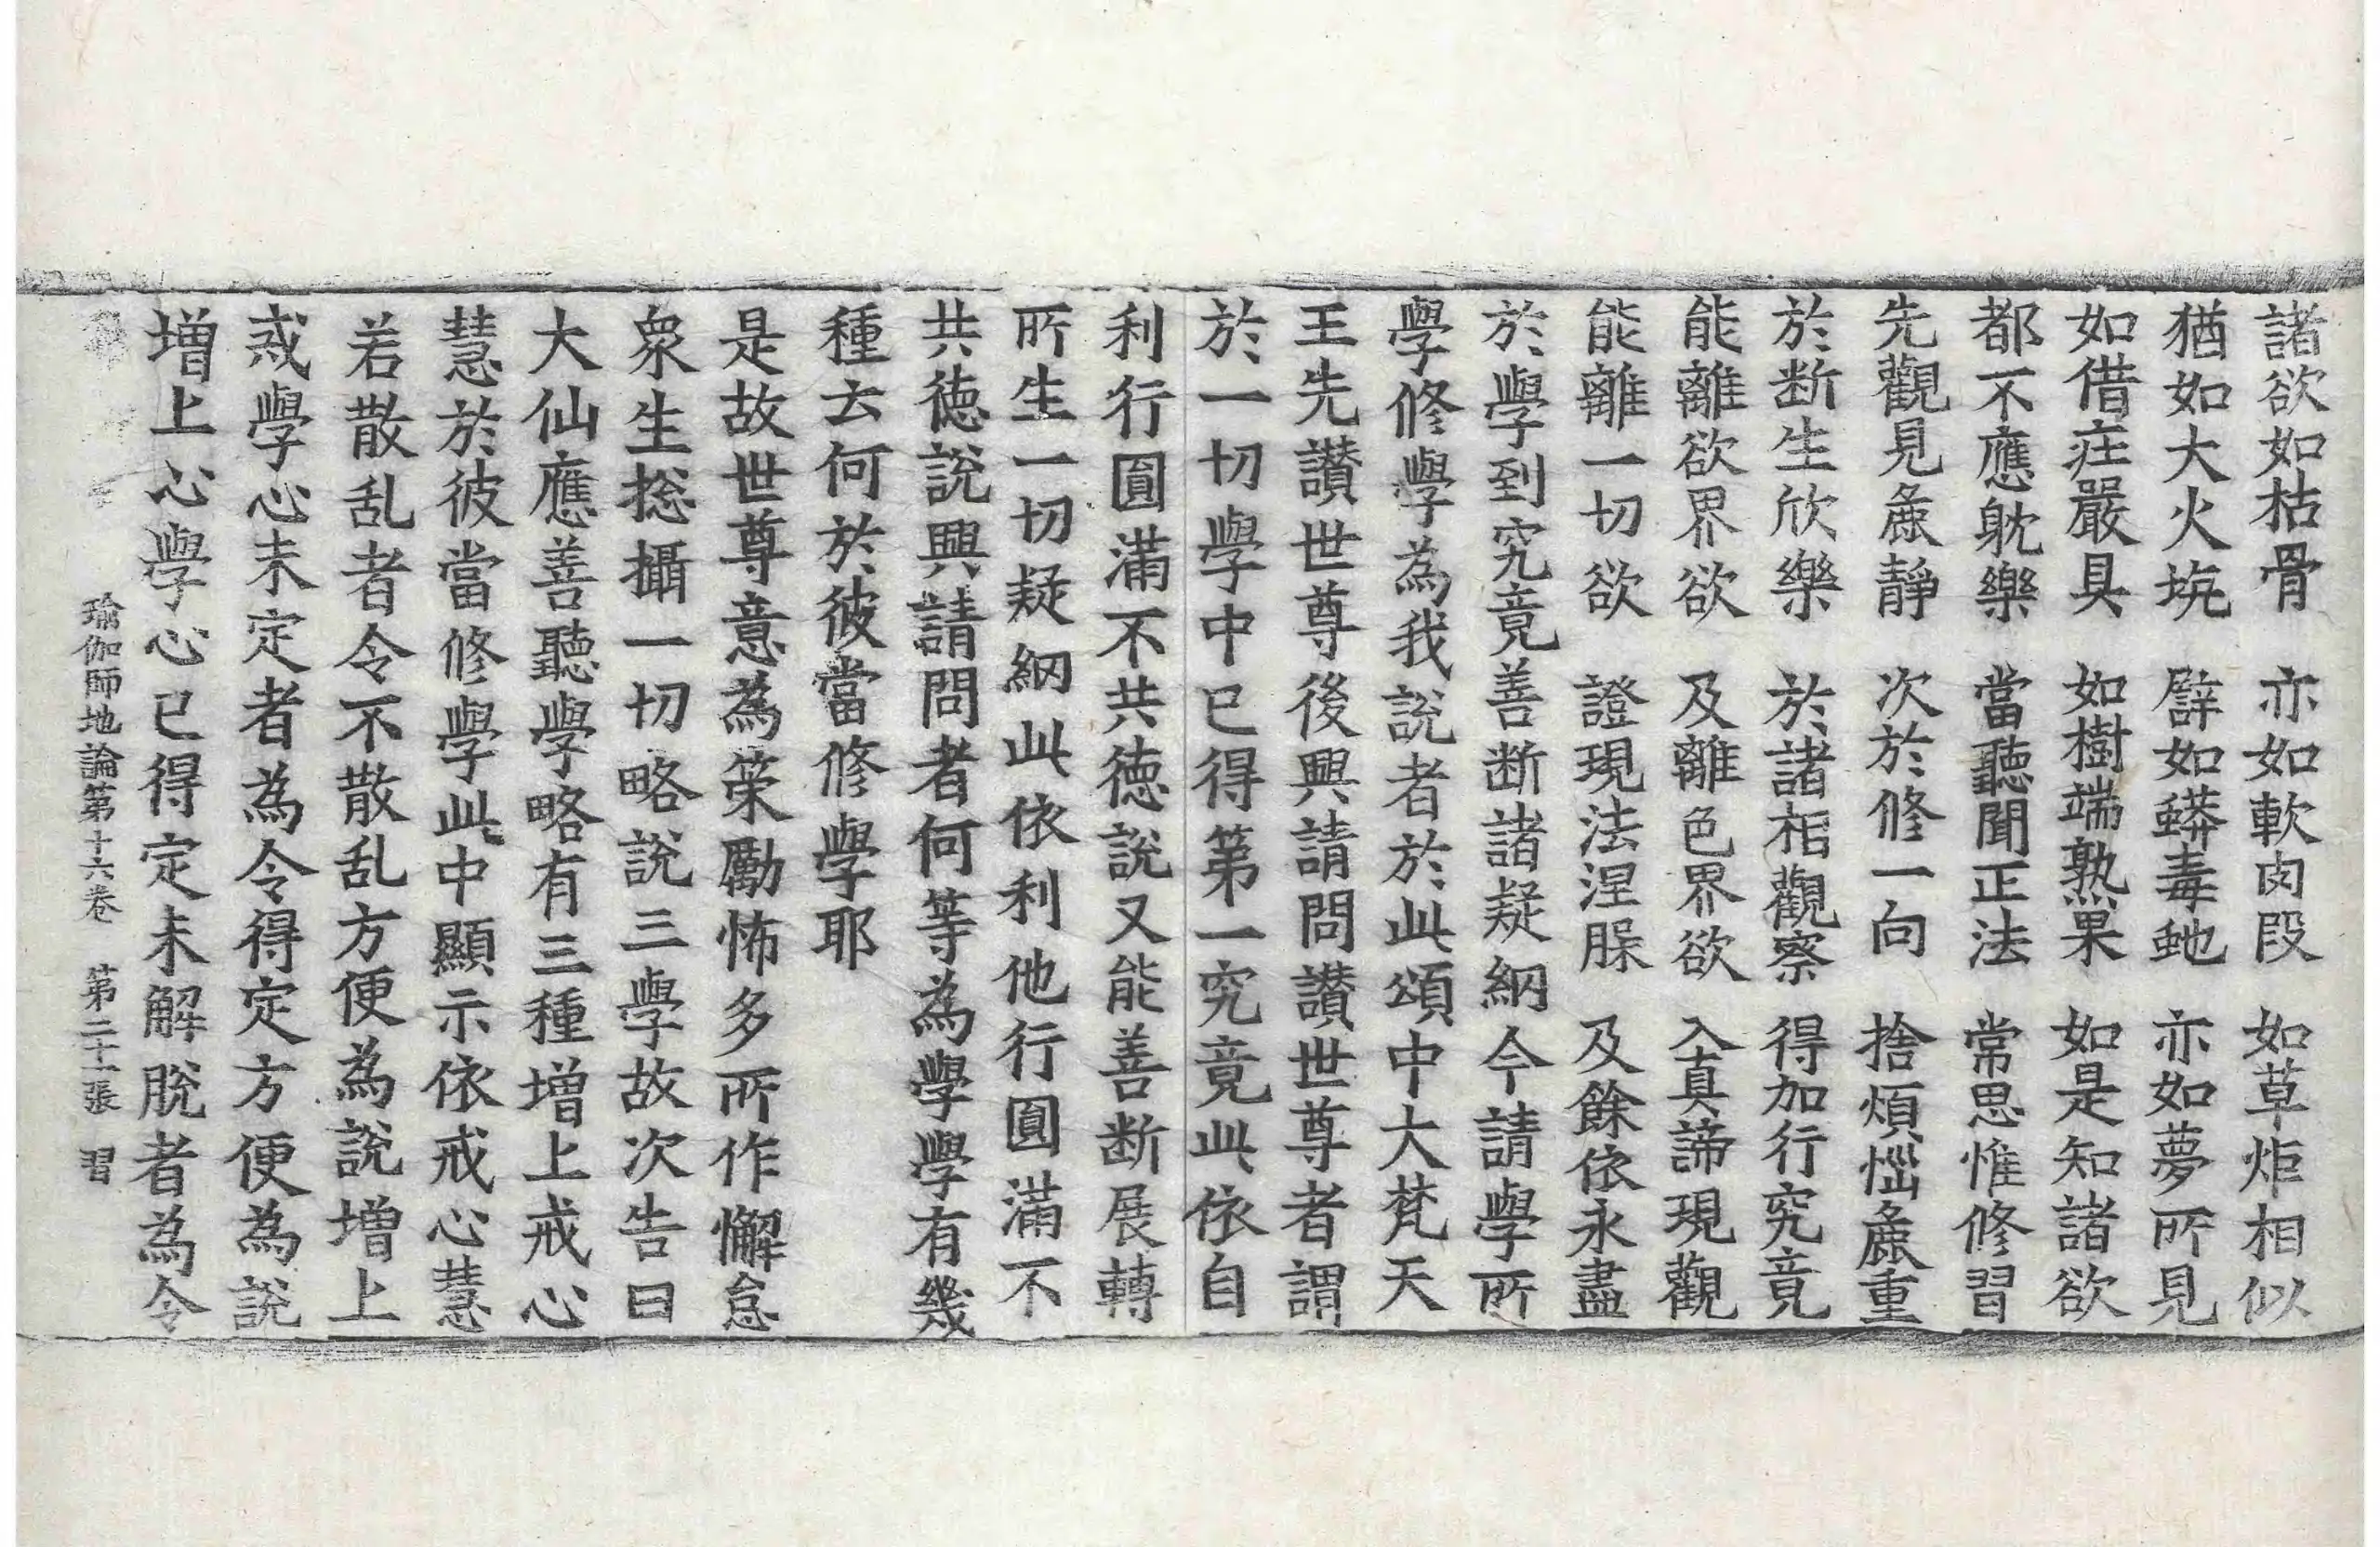 諸欲如枯骨　亦如軟肉段　如草炬相似
猶如大火坑　譬如蟒毒虵　亦如夢所見
如借庄嚴具　如樹端熟果　如是知諸欲
都不應躭樂　當聽聞正法　常思惟修習
先觀見麁靜　次於修一向　捨煩惱麁重
於断生欣樂　於諸相觀察　得加行究竟
能離欲界欲　及離色界欲　入真諦現觀
能離一切欲　證現法涅槃　及餘依永盡
於學到究竟善断諸疑網今請學所
學修學為我說者於此頌中大梵天
王先讃世尊後興請問讃世尊者謂
於一切學中已得第一究竟此依自
利行圓滿不共德說又能善断展轉
所生一切疑網此依利他行圓滿不
共德說興請問者何等為學學有幾
種云何於彼當修學耶
是故世尊意為策勵怖多所作懈怠
衆生捴攝一切略說三學故次告曰
大仙應善聽學略有三種增上戒心
慧於彼當修學此中顯示依戒心慧
若散乱者令不散乱方便為說增上
戒學心未定者為令得定方便為說
增上心學心已得定未解脫者為令
瑜伽師地論第十六卷　第二十二張　習